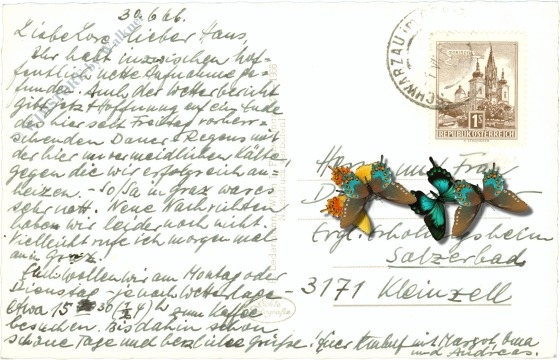 30.6.66.
Liebe Lore, lieber Hans,
Ihr habt inzwischen hof-
fentlich nette Aufnahme ge-
funden. Auch der Wetterbericht
gibt jetzt Hoffnung auf ein Ende
des hier seit Freitag vorherr-
schenden Dauer-Regens mit
der hier unvermeidlichen Kälte,
gegen die wir erfolgreich an-
heizen. - So/Sa in Graz war es
sehr nett. Neue Nachrichten
haben wir leider noch nicht.
Vielleicht rufe ich morgen mal
an in Graz.
Euch wollen wir am Montag oder
Dienstag - je nach Wetterlage -
etwa 15 30 (½4)h zum Kaffee
besuchen. Bis dahin schöne
Tage und herzliche Grüße! Euer mit Margot, Oma
und Andreas.
SCHWARZAU IM
1S
REPUBLIK ÖSTERREICH
und Frau
D
Erholungsheim
Salzerbad
3171 Kleinzell